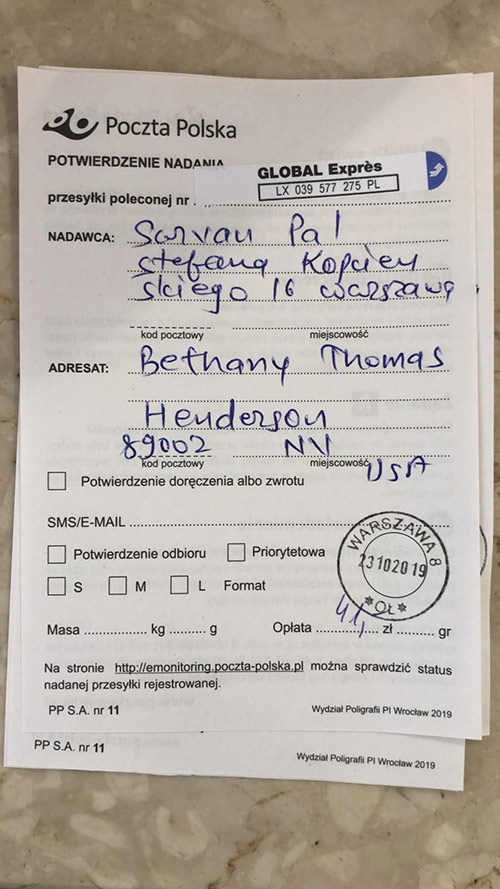 Poczta Polska
POTWIERDZENIE NADANIA
GLOBAL Exprès
LX 039 577 275 PL
przesyłki poleconej nr .
NADAWCA: Sarvan Pal
Stefana Kopcien
skiego 16 warszawa
kod pocztowy miejscowość
ADRESAT: Bethany Thomas
Henderson
89002 NV
kod pocztowy miejscowość USA
Potwierdzenie doręczenia albo zwrotu
SMS/E-MAIL
Potwierdzenie odbioru Priorytetowa
S M L Format
WARSZAWA 8
23102019
Masa kg g Opłata 41, zł gr
Na stronie http://emonitoring.poczta-polska.pl można sprawdzić status
nadanej przesyłki rejestrowanej.
PP S.A. nr 11 Wydział Poligrafii PI Wrocław 2019
PP S.A. nr 11 Wydział Poligrafii PI Wrocław 2019